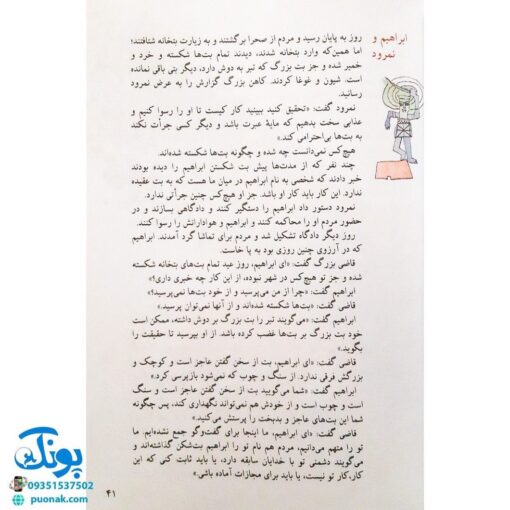 ابراهیم و
نمرود
روز به پایان رسید و مردم از صحرا برگشتند و به زیارت بتخانه شتافتند؛
اما همین‌که وارد بتخانه شدند، دیدند تمام بت‌ها شکسته و خرد و
خمیر شده و جز بت بزرگ که تبر به دوش دارد، دیگر بتی باقی نمانده
است. شیون و غوغا کردند. کاهن بزرگ گزارش را به عرض نمرود
رسانید.
نمرود گفت: «تحقیق کنید ببینید کار کیست تا او را رسوا کنیم و
عذابی سخت بدهیم که مایهٔ عبرت باشد و دیگر کسی جرأت نکند
به بت‌ها بی‌احترامی کند.»
هیچ‌کس نمی‌دانست چه شده و چگونه بت‌ها شکسته شده‌اند.
چند نفر که از مدت‌ها پیش بت شکستن ابراهیم را دیده بودند
خبر دادند که شخصی به نام ابراهیم در میان ما هست که به بت عقیده
ندارد. این کار باید کار او باشد. جز او هیچ‌کس چنین جرأتی ندارد.
نمرود دستور داد ابراهیم را دستگیر کنند و دادگاهی بسازند و در
حضور مردم او را محاکمه کنند و ابراهیم و هوادارانش را رسوا کنند.
روز دیگر دادگاه تشکیل شد و مردم برای تماشا گرد آمدند. ابراهیم
که در آرزوی چنین روزی بود به پا خاست.
قاضی بزرگ گفت: «ای ابراهیم، روز عید تمام بت‌های بتخانه شکسته
شده و جز تو هیچ‌کس در شهر نبوده، از این کار چه خبری داری؟»
ابراهیم گفت: «چرا از من می‌پرسید و از خود بت‌ها نمی‌پرسید؟»
قاضی گفت: «بت‌ها شکسته شده‌اند و از آنها نمی‌توان پرسید.»
ابراهیم گفت: «می‌گویند تبر را بت بزرگ بر دوش داشته، ممکن است
خود بت بزرگ بر بت‌ها غضب کرده باشد. از او بپرسید تا حقیقت را
بگوید.»
قاضی گفت: «ای ابراهیم، بت از سخن گفتن عاجز است و کوچک و
بزرگش فرقی ندارد. از سنگ و چوب که نمی‌شود بازپرسی کرد.»
ابراهیم گفت: «شما می‌گویید بت از سخن گفتن عاجز است و سنگ
است و چوب است و از خودش هم نمی‌تواند نگهداری کند، پس چگونه
شما این بت‌های عاجز و بدبخت را پرستش می‌کنید.»
قاضی گفت: «ای ابراهیم، ما اینجا برای گفت‌وگو جمع نشده‌ایم. ما
تو را متهم می‌دانیم، مردم هم نام تو را ابراهیم بت‌شکن گذاشته‌اند و
می‌گویند دشمنی تو با خدایان سابقه دارد، یا باید ثابت کنی که این
کار، کار تو نیست، یا باید برای مجازات آماده باشی.»
۴۱
پونک
09351537502
puonak.com